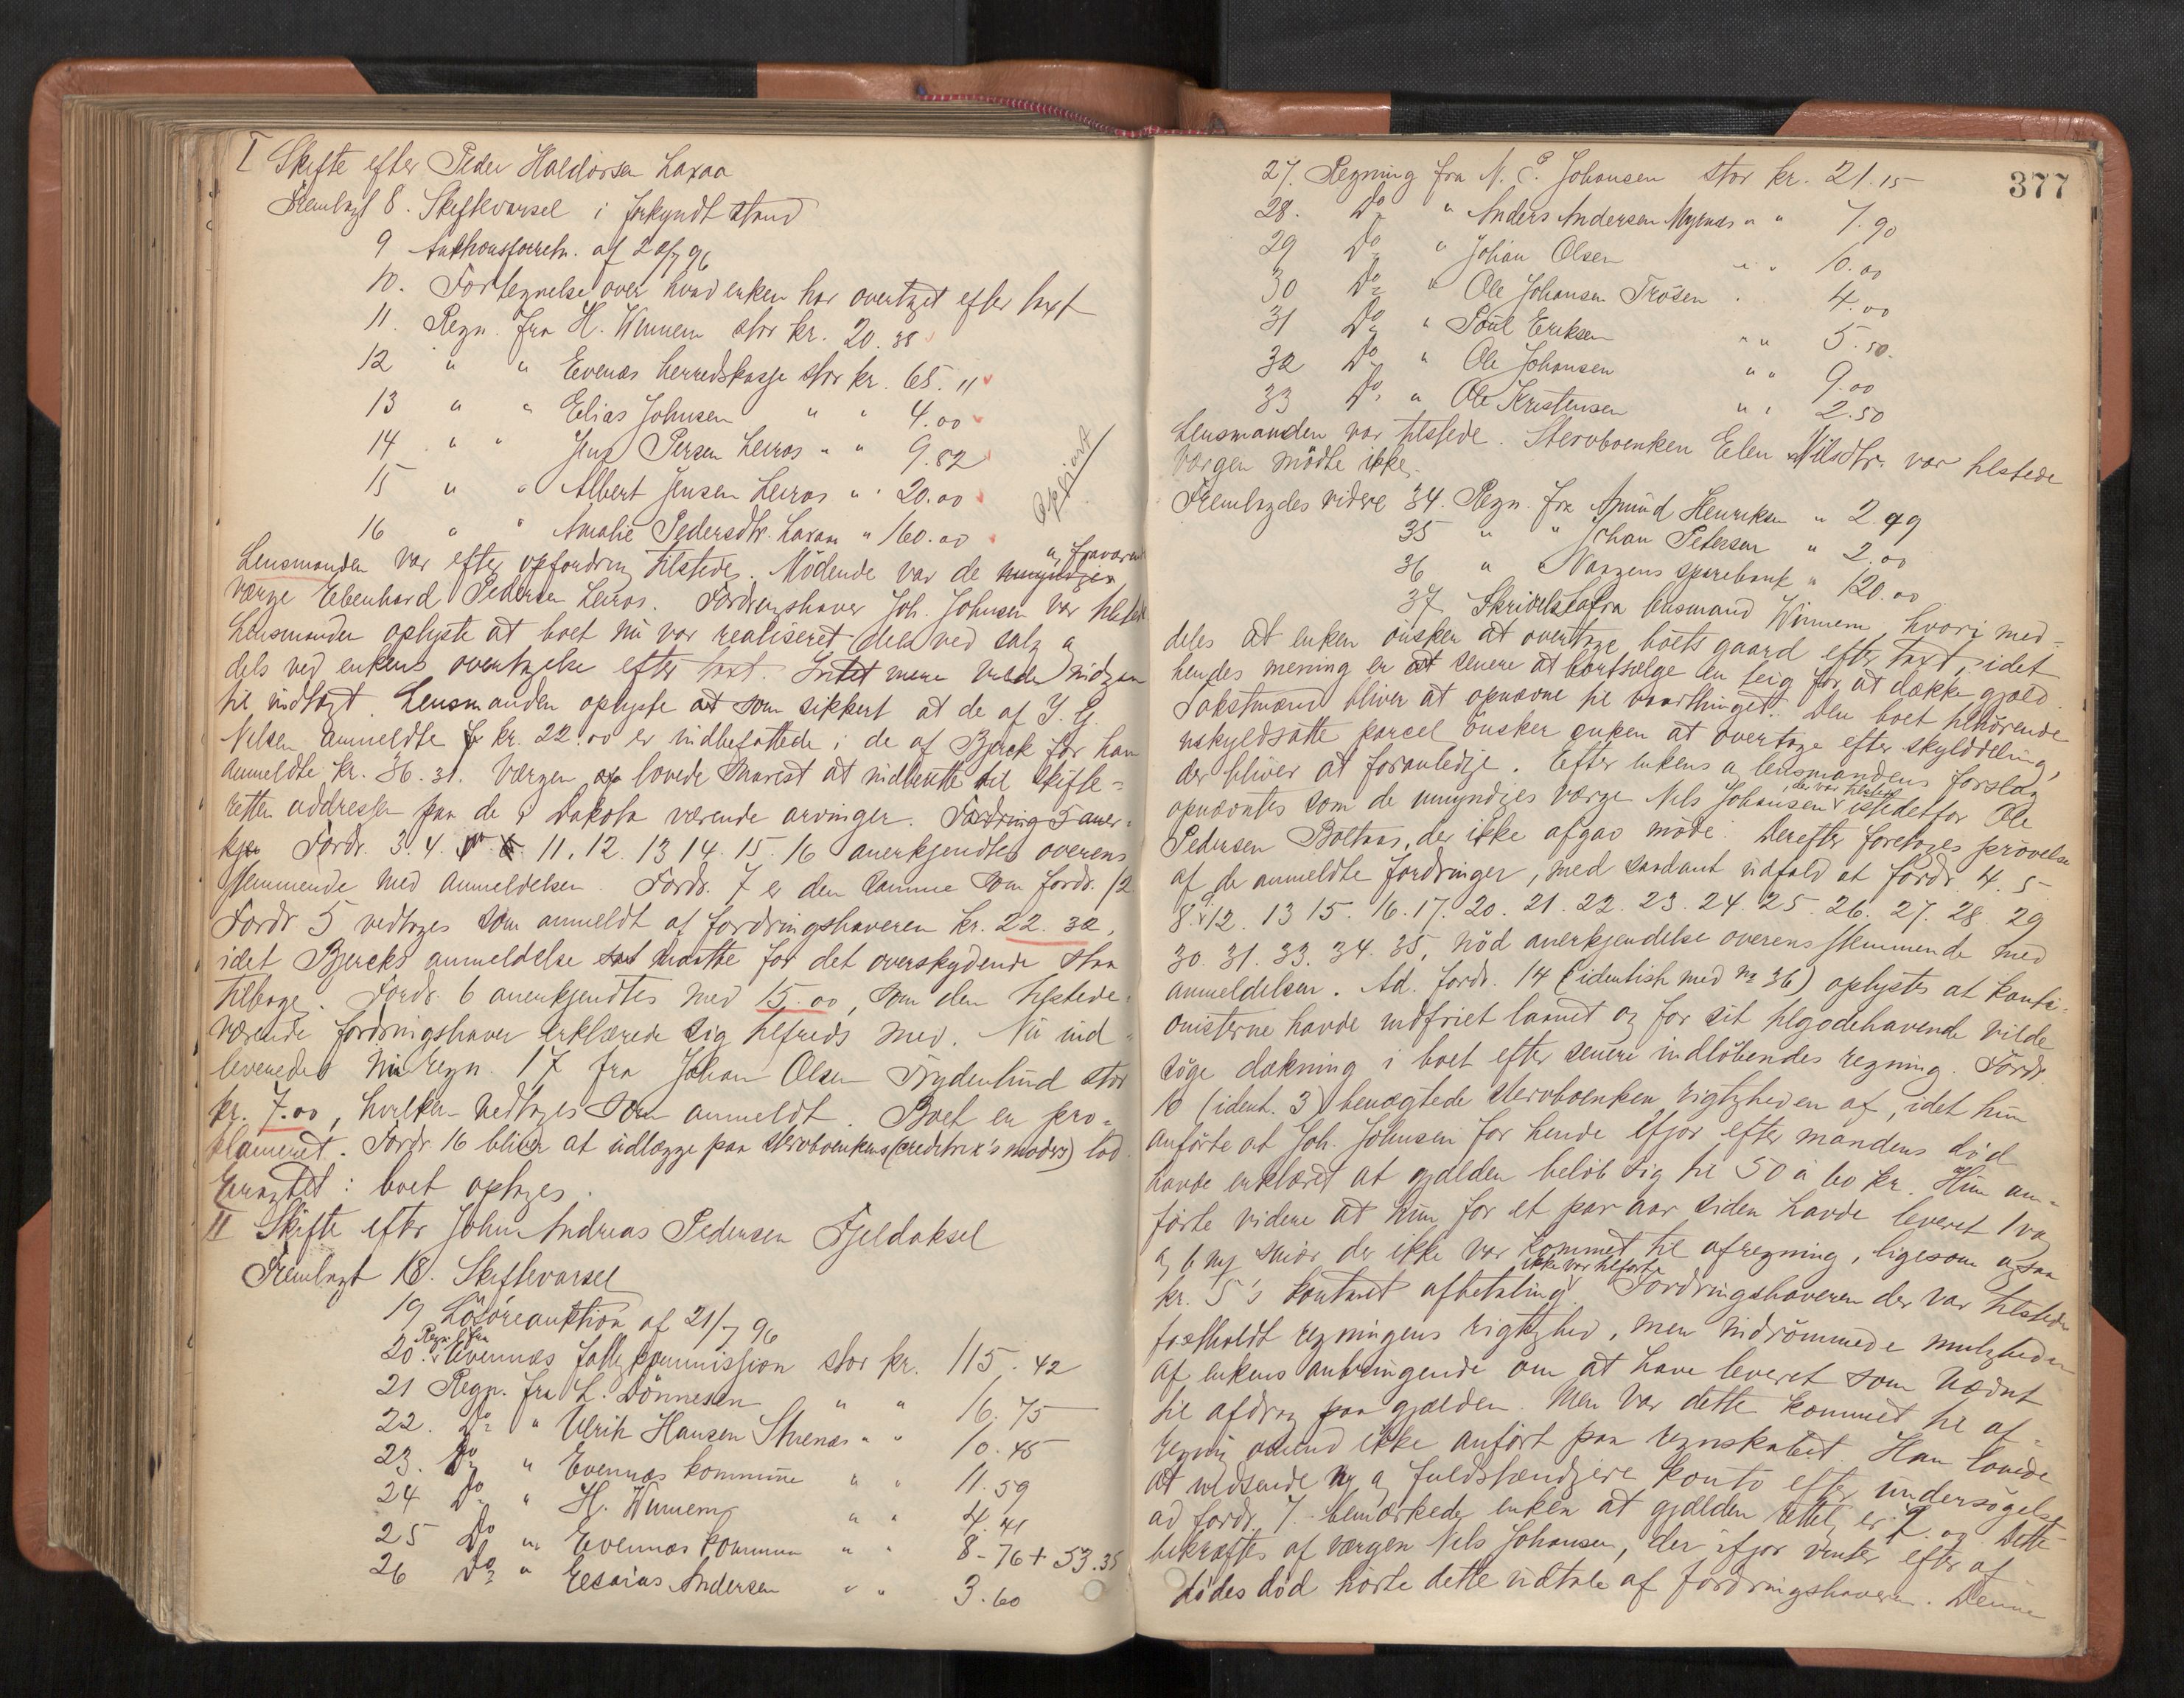 I Skifte efter Peder Haldorsen Laxaa
Fremlagt 8. Skiftevarsel i forkyndt stand
9 Auktionsforretn. af 20/7 96
10. Fortegnelse over hvad enken har overtaget efter taxt
11. Regn. fra H. Winnem stor kr. 20.38
12 " " Evenæs herredskasse stor kr. 65.11
13 " " Elias Johnsen " " 4.00
14 " " Jens Persen Leiros " " 9.82
15 " " Albert Jensen Leiros " " 20.00
16 " " Amalie Pedersdtr. Laxaa " 160.00
Opfört
Lensmanden var efter opfordring tilstede. Mödende var de umyndiges og fraværendes
værge Ebenhard Pedersen Leiros. Fordringshaver Joh. Johnsen var tilstede
Lensmanden oplyste at boet nu var realiseret dels ved salg og
dels ved enkens overtagelse efter taxt. Intet mere vilde indgaa
til indtægt. Lensmanden oplyste at som sikkert at de af J. G.
Nilsen anmeldte kr. 22.00 er indbefattede i de af Bjerck for ham
anmeldte kr. 36.31. Værgen lovede snarest at indhente til skifte=
retten addressen paa de i Dakota værende arvinger. Fordring 5 aner=
kjen Fordr. 3. 4. 11. 12. 13 14. 15. 16 anerkjendtes overens
stemmende med anmeldelsen. Fordr. 7 er den samme som fordr. 12
Fordr 5 vedtages som anmeldt af fordringshaveren kr. 22.32,
idet Bjercks anmeldelse maatte for det overskydende staa
tilbage. Fordr. 6 anerkjendtes med 15.00, som den tilstede=
værende fordringshaver erklærede sig tilfreds med. Nu ind=
leveredes regn. 17 fra Johan Olsen Frydenlund stor
kr. 7.00, hvilken vedtages som anmeldt. Boet er pro=
klameret. Fordr. 16 bliver at udlægge paa stervboenkens (creditrix's moders) lod.
Eragtet: boet optages.
II Skifte efter John Andreas Pedersen Fjeldaksel
Fremlagt 18. Skiftevarsel
19 Lösöreauktion af 21/7 96
20. Regn. fra Evennæs fattigkommission stor kr. 115.42
21 Regn. fra L. Dönnesen " " 16.75
22. Do " Ulrik Hansen Stunes " " 10.45
23. Do " Evennæs kommune " " 11.59
24 Do " H. Winnem " " 4.41
25 Do " Evennæs kommune " " 8-76 + 53.35
26 Do " Esaias Andersen " " 3.60
377
27. Regning fra N. C. Johansen stor kr. 21.15
28. Do " Anders Andersen Myrnæs " " 7.90
29 Do " Johan Olsen " " 10.00
30 Do " Ole Johansen Trösen " 4.00
31 Do " Poul Eriksen " " 5.50.
32 Do " Ole Johansen " " 9.00
33 Do " Ole Kristensen " " 2.50
Lensmanden var tilstede. Stervboenken Elen Nilsdtr. var tilstede
Værgen mödte ikke.
Fremlagdes videre 34. Regn. fra Amund Henriksen " 2.49
35 " " Johan Petersen " 2.00
36 " Vaagens sparebank " 120.00
37. Skrivelse fra lensmand Winnem, hvori med=
deles at enken önsker at overtage boets gaard efter taxt, idet
hendes mening er at senere at bortsælge en teig for at dække gjæld.
Takstmænd bliver at opnævne til vaarthinget. Den boet tilhörende
uskyldsatte parcel önsker enken at overtage efter skylddeling,
der bliver at foranledige. Efter enkens og lensmandens forslag
opnævntes som de umyndiges værge Nils Johansen der var tilstede istedetfor Ole
Pedersen Boltaas, der ikke afgav möde. Derefter foretages prövelse
af de anmeldte fordringer, med saadant udfald at fordr. 4. 5
8. 12. 13 15. 16. 17. 20. 21. 22. 23. 24. 25. 26. 27. 28. 29
30. 31. 33. 34. 35, nöd anerkjendelse overensstemmende med
anmeldelsen. Ad. fordr. 14 (identisk med No 36) oplystes at kauti=
onisterne havde indfriet laanet og for sit tilgodehavende vilde
söge dækning i boet efter senere indlöbendes regning. Fordr.
10 (ident. 3) benægtede stervboenken rigtigheden af, idet hun
anförte at Joh. Johnsen for hende ifjor efter mandens död
havde erklæret at gjælden belöb sig til 50 à 60 kr. Hun an=
förte videre at hun for et par aar siden havde leveret 1 vog
og 6 mk smör der ikke var kommet til afregning, ligesom ogsaa
kr. 5 i kontant afbetaling ikke var tilfört. Fordringshaveren der var tilstede
fastholdt regningens rigtighed, men indrömmede muligheden
af enkens anbringende om at have leveret som nævnt
til afdrag paa gjælden. Men var dette kommet til af=
regning omend ikke anfört paa regnskabet. Han lovede
at indsende ny og fuldstændigere konto efter undersögelse
ad fordr. 7. bemærkede enken at gjælden rettelig er 2.00. Dette
bekræftes af værgen Nils Johansen, der ifjor vinter efter af
dödes död hörte dette udtale af fordringshaveren. Denne